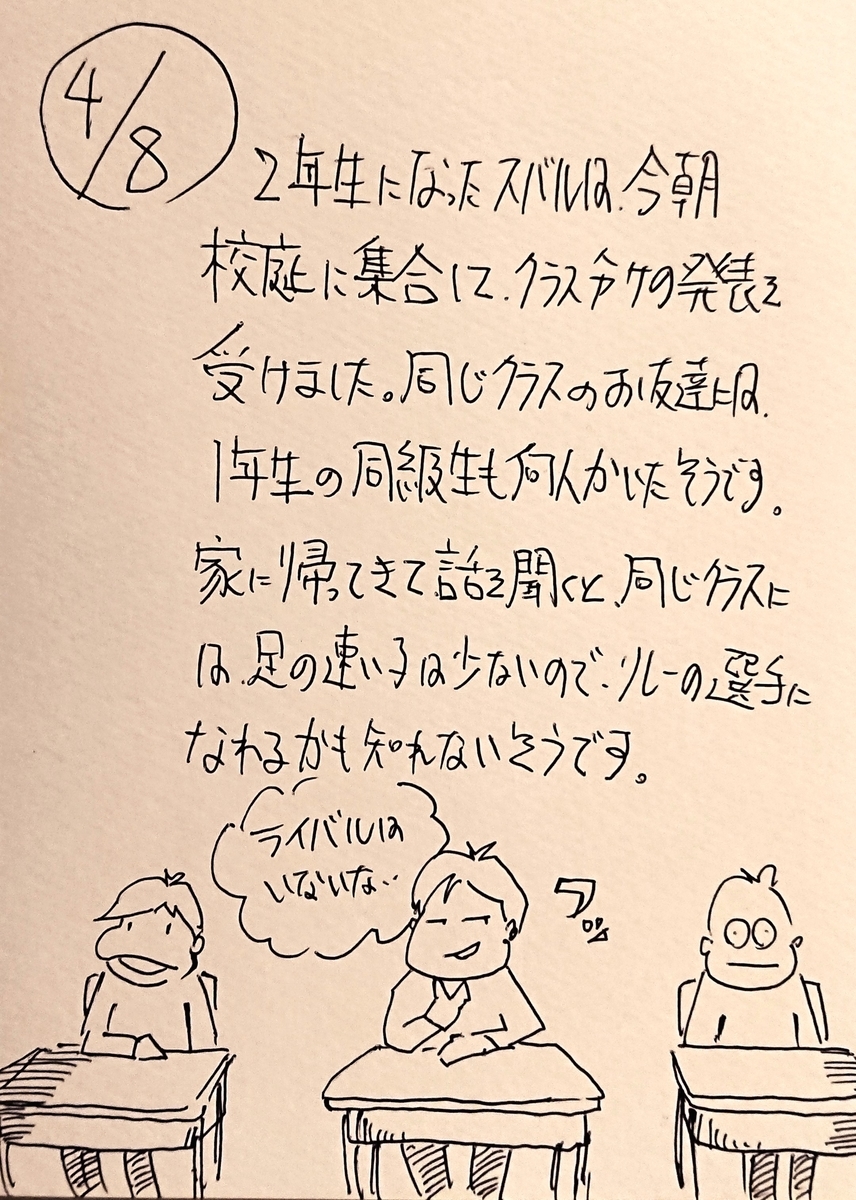 4/8
2年生になったスバルは、今朝
校庭に集合して、クラス分けの発表を
受けました。同じクラスのお友達には、
1年生の同級生も何人かいたそうです。
家に帰ってきて話を聞くと、同じクラスに
は、足の速い子は少ないので、リレーの選手に
なれるかも知れないそうです。
ライバルは
いないな…
フッ